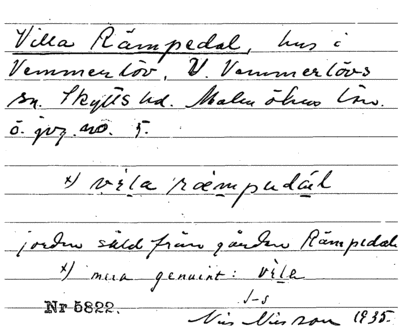 Villa Rämpedal, hus i
Vemmerlöv, V. Vemmerlövs
sn. Skytts hd. Malmöhus län.
ö. jvg. no. 5.
x) vìla ræmpədál
jorden såld från gården Rämpedal
x) mera genuint: vìla
J-s
Nr 5822.
Nils Nilsson 1935.